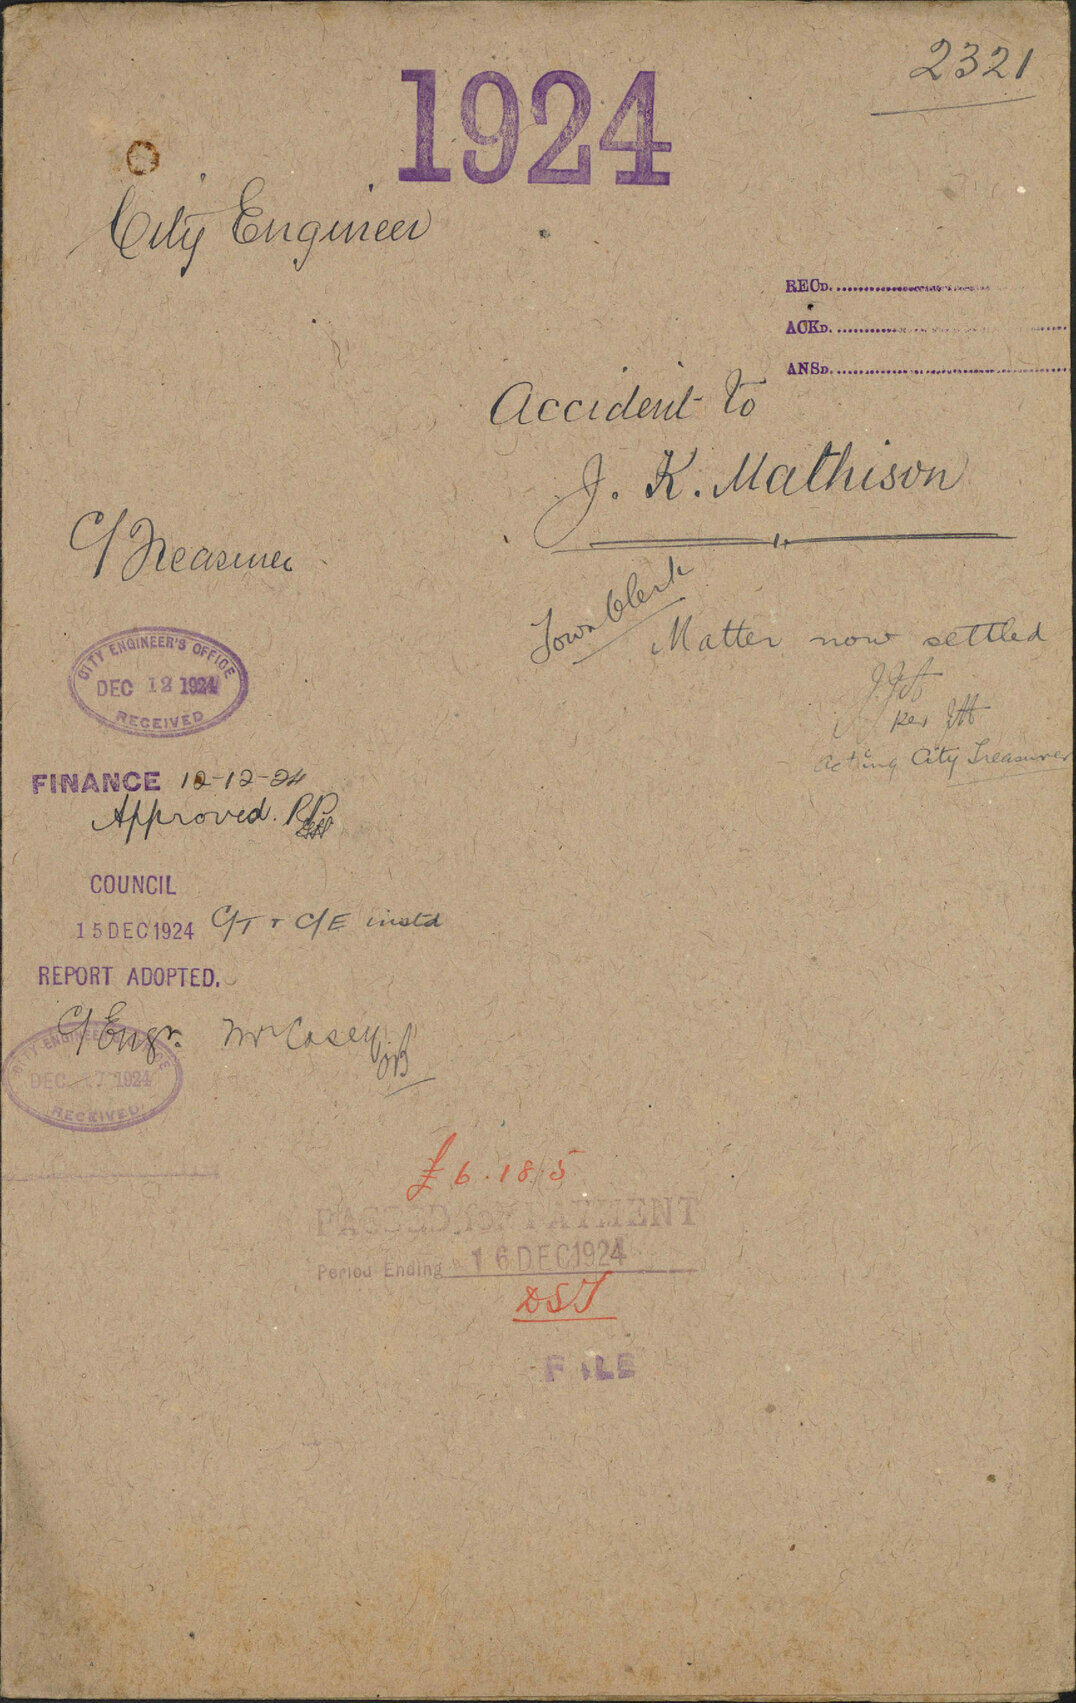 2321
1924
City Engineer
RECD.
ACKD.
ANSD.
Accident to
J. K. Mathison
C/Treasurer
Town Clerk
Matter now settled
per
Acting City Treasurer
CITY ENGINEER'S OFFICE
DEC 12 1924
RECEIVED
FINANCE 12-12-24
Approved.
COUNCIL
15 DEC 1924 C/T & C/E instd
REPORT ADOPTED.
C/Engr. Mr Casey
CITY ENGINEER'S OFFICE
DEC 17 1924
RECEIVED
£6.18.5
PASSED for PAYMENT
Period Ending 16 DEC 1924
DST
FILE